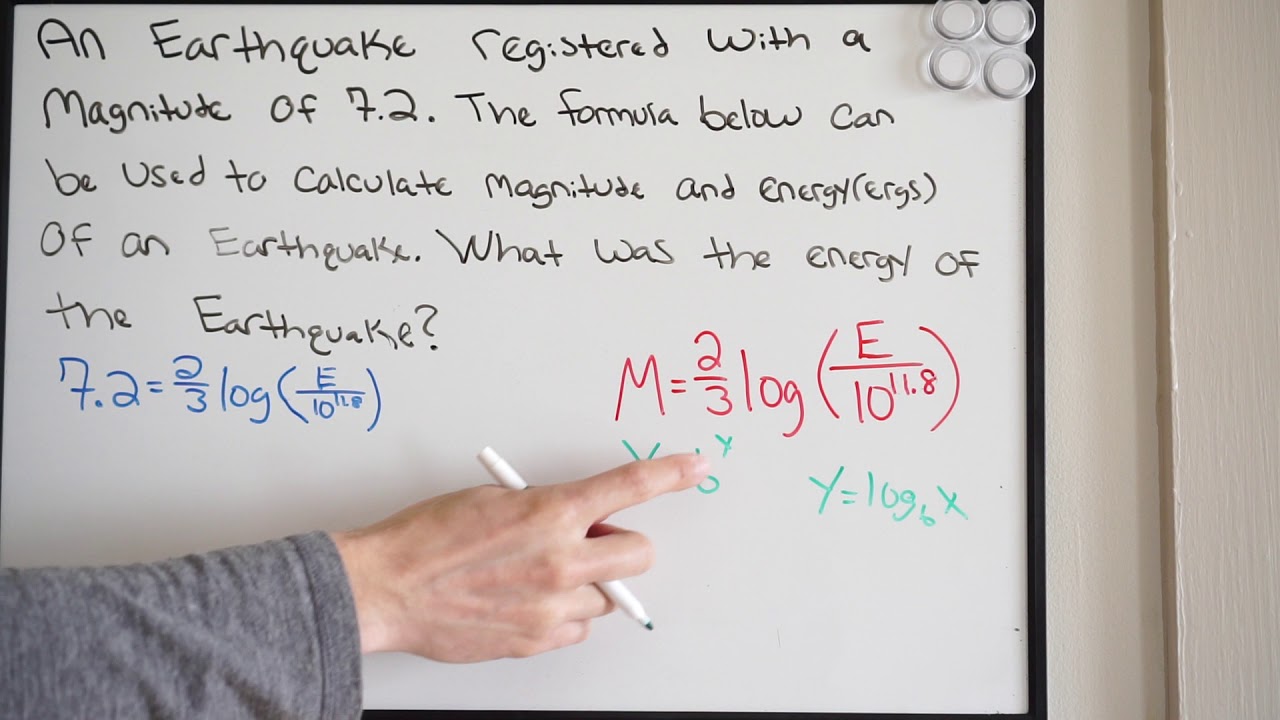 An Earthquake registered with a
Magnitude of 7.2. The formula below can
be used to calculate magnitude and energy(ergs)
of an Earthquake. What was the energy of
the Earthquake?
7.2=2/3 log(E/10^11.8)
M=2/3 log(E/10^11.8)
y=log_b x